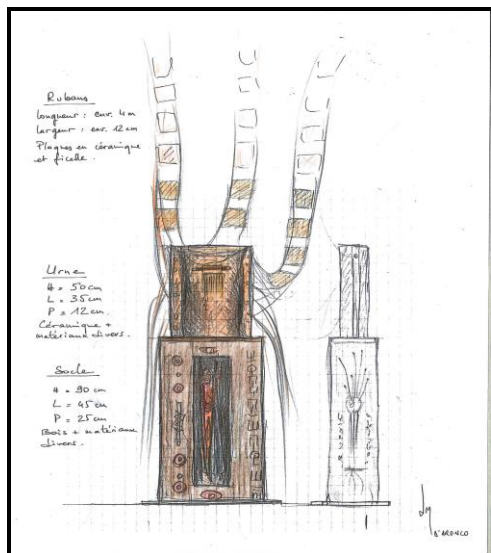 Rubans
longueur : env. 4 m
largeur : env. 12 cm
Plaques en céramique
et ficelle.
Urne
H = 50 cm
L = 35 cm
P = 12 cm.
Céramique +
matériaux divers.
Socle
H = 90 cm
L = 45 cm
P = 25 cm
Bois + matériaux
divers.
D'ARONCO